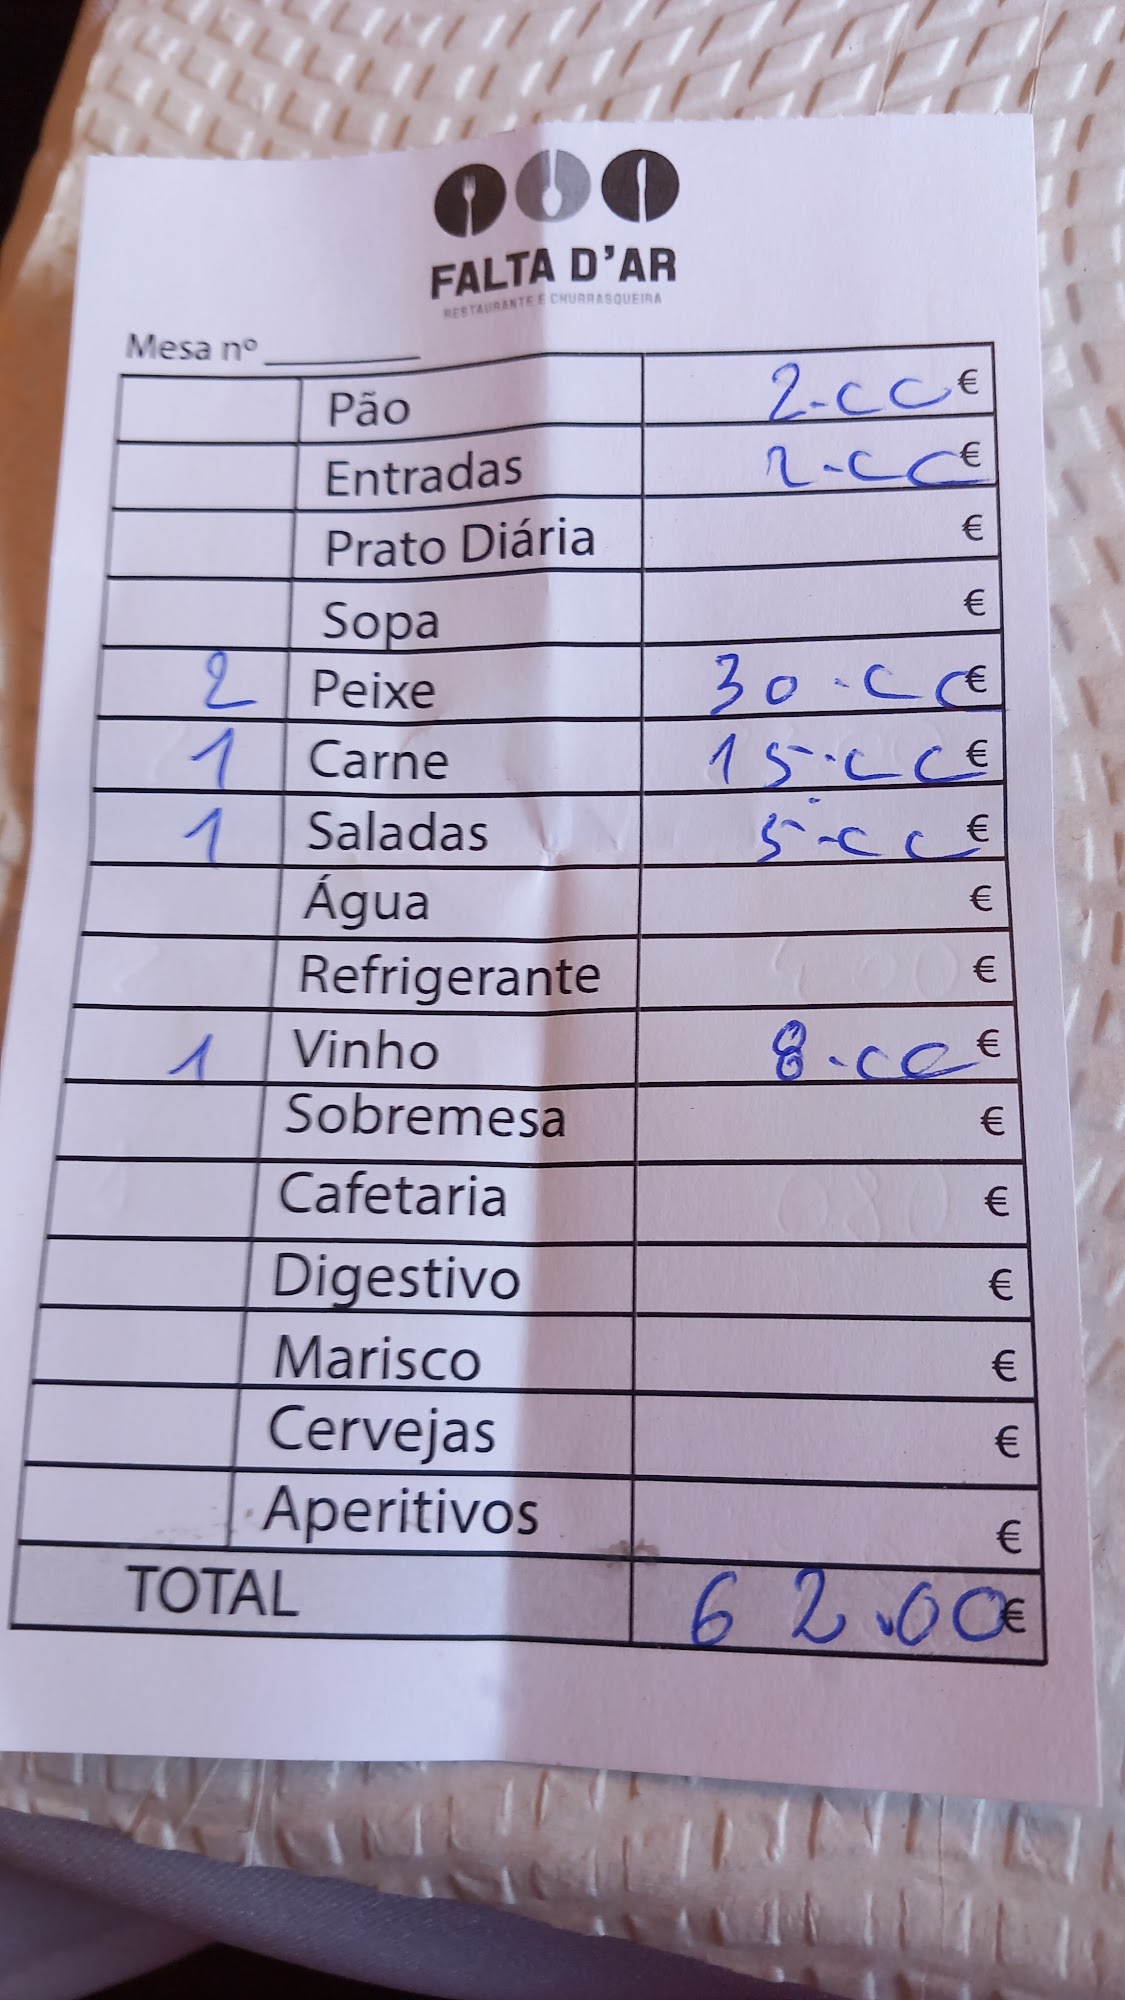 FALTA D'AR
RESTAURANTE E CHURRASQUEIRA
Mesa nº
Pão 2.00 €
Entradas 2.00 €
Prato Diária €
Sopa €
2 Peixe 30.00 €
1 Carne 15.00 €
1 Saladas 5.00 €
Água €
Refrigerante €
1 Vinho 8.00 €
Sobremesa €
Cafetaria €
Digestivo €
Marisco €
Cervejas €
Aperitivos €
TOTAL 62.00 €